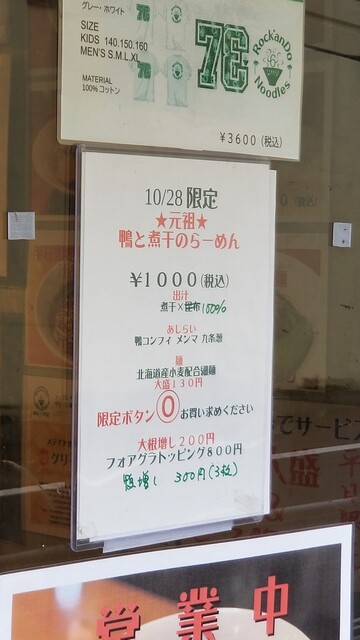 グレー・ホワイト
SIZE
KIDS 140.150.160
MEN'S S.M.L.XL
MATERIAL
100%コットン
73
Rock'anDo
Noodles
¥3600(税込)
10/28 限定
★元祖★
鴨と煮干のらーめん
¥1000(税込)
出汁
煮干×昆布 100%
あしらい
鴨コンフィ メンマ 九条葱
麺
北海道産小麦配合細麺
大盛130円
限定ボタン⓪お買い求めください
大根増し200円
フォアグラトッピング800円
増し 300円(3枚)
でサービス
営業中